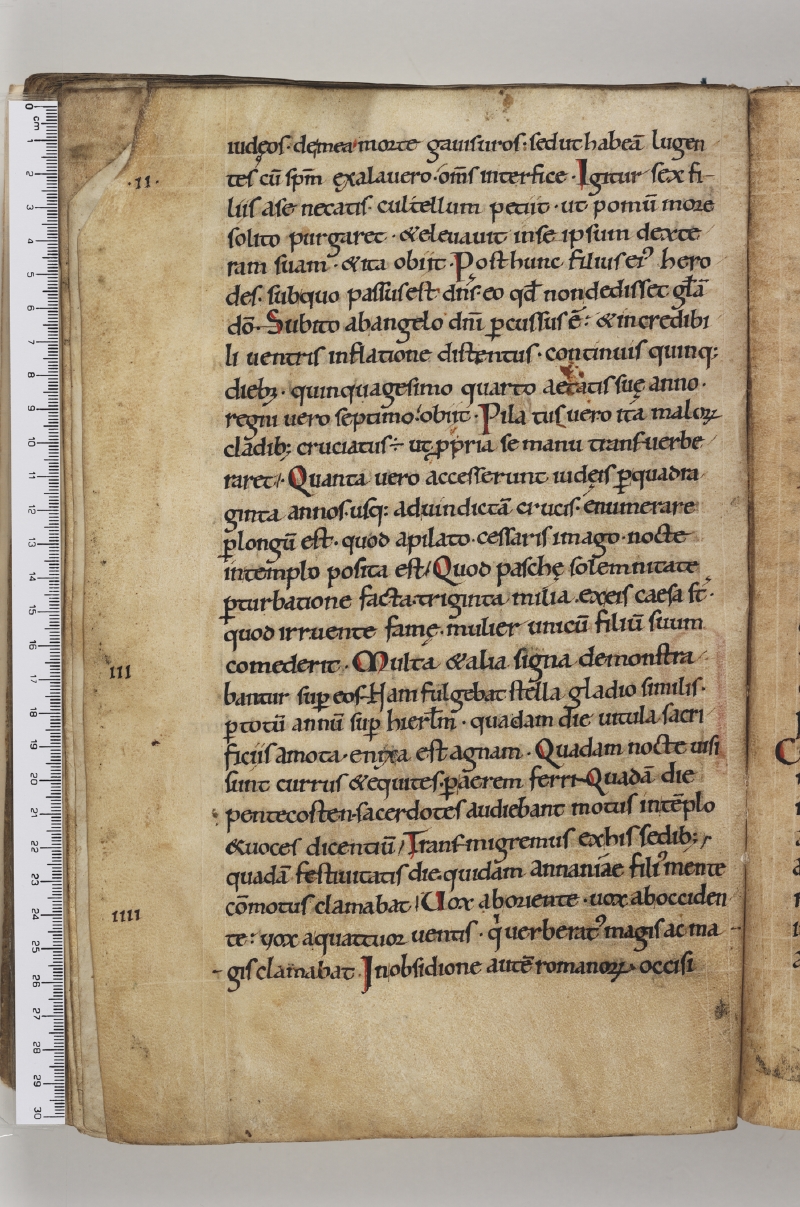 iudęos· de mea morte gauisuros: sed ut habeā lugen
tes cū sp̄m ęxalauero· om̄s interfice· Igitur sex fi-
·II·
liis a se necatis· cultellum petiit· ut pomū more
solito purgaret· & eleuauit in se ipsum dexte
ram suam· & ita obiit· Post hunc filius ei᾽ hero
des· sub quo passus est dn̄s· eo qd̄ non dedisset głā
dō· Subito ab angelo dn̄i ꝑcussus ē: & incredibi
li uentris inflatione distentus· continuis quinq:
dieb;· quinquagesimo quarto aetatis suę anno·
regni uero septimo· obiit· Pilatus uero ita maloꝝ
cladib; cruciatus ÷ ut ꝓpria se manu transuerbe
raret· Quanta uero accesserunt iudęis ꝑ quadra
ginta annos· usq: ad uindictā crucis· enumerare
ꝑlongū est· quod a pilato· cessaris imago· nocte
in templo posita est· Quod paschę solemnitate
ꝑturbatione facta· triginta milia· ex eis caesa st̄·
quod irruente fame· mulier unicū filiū suum
comederit· Multa & alia signa demonstra
III
bantur suꝑ eos· Nam fulgebat stella gladio similis·
ꝑ totū annū suꝑ hierłm· quadam die uitula sacri
ficiis amota· enixa est agnam· Quadam nocte uisi
sunt currus & equites· ꝑ aerem ferri· Quadā die
pentecosten· sacerdotes audiebant motus in tēplo
& uoces dicentiū· Transmigremus ex his sedib;·
quadā festiuitatis die· quidam annaniae fili᾽ mente
cōmotus clamabat· Uox ab oriente· uox ab occiden
IIII
te: uox a quattuor uentis· qͥ uerberat᾽ magis ac ma
gis clamabat· In obsidione autē romanoꝝ· occisi